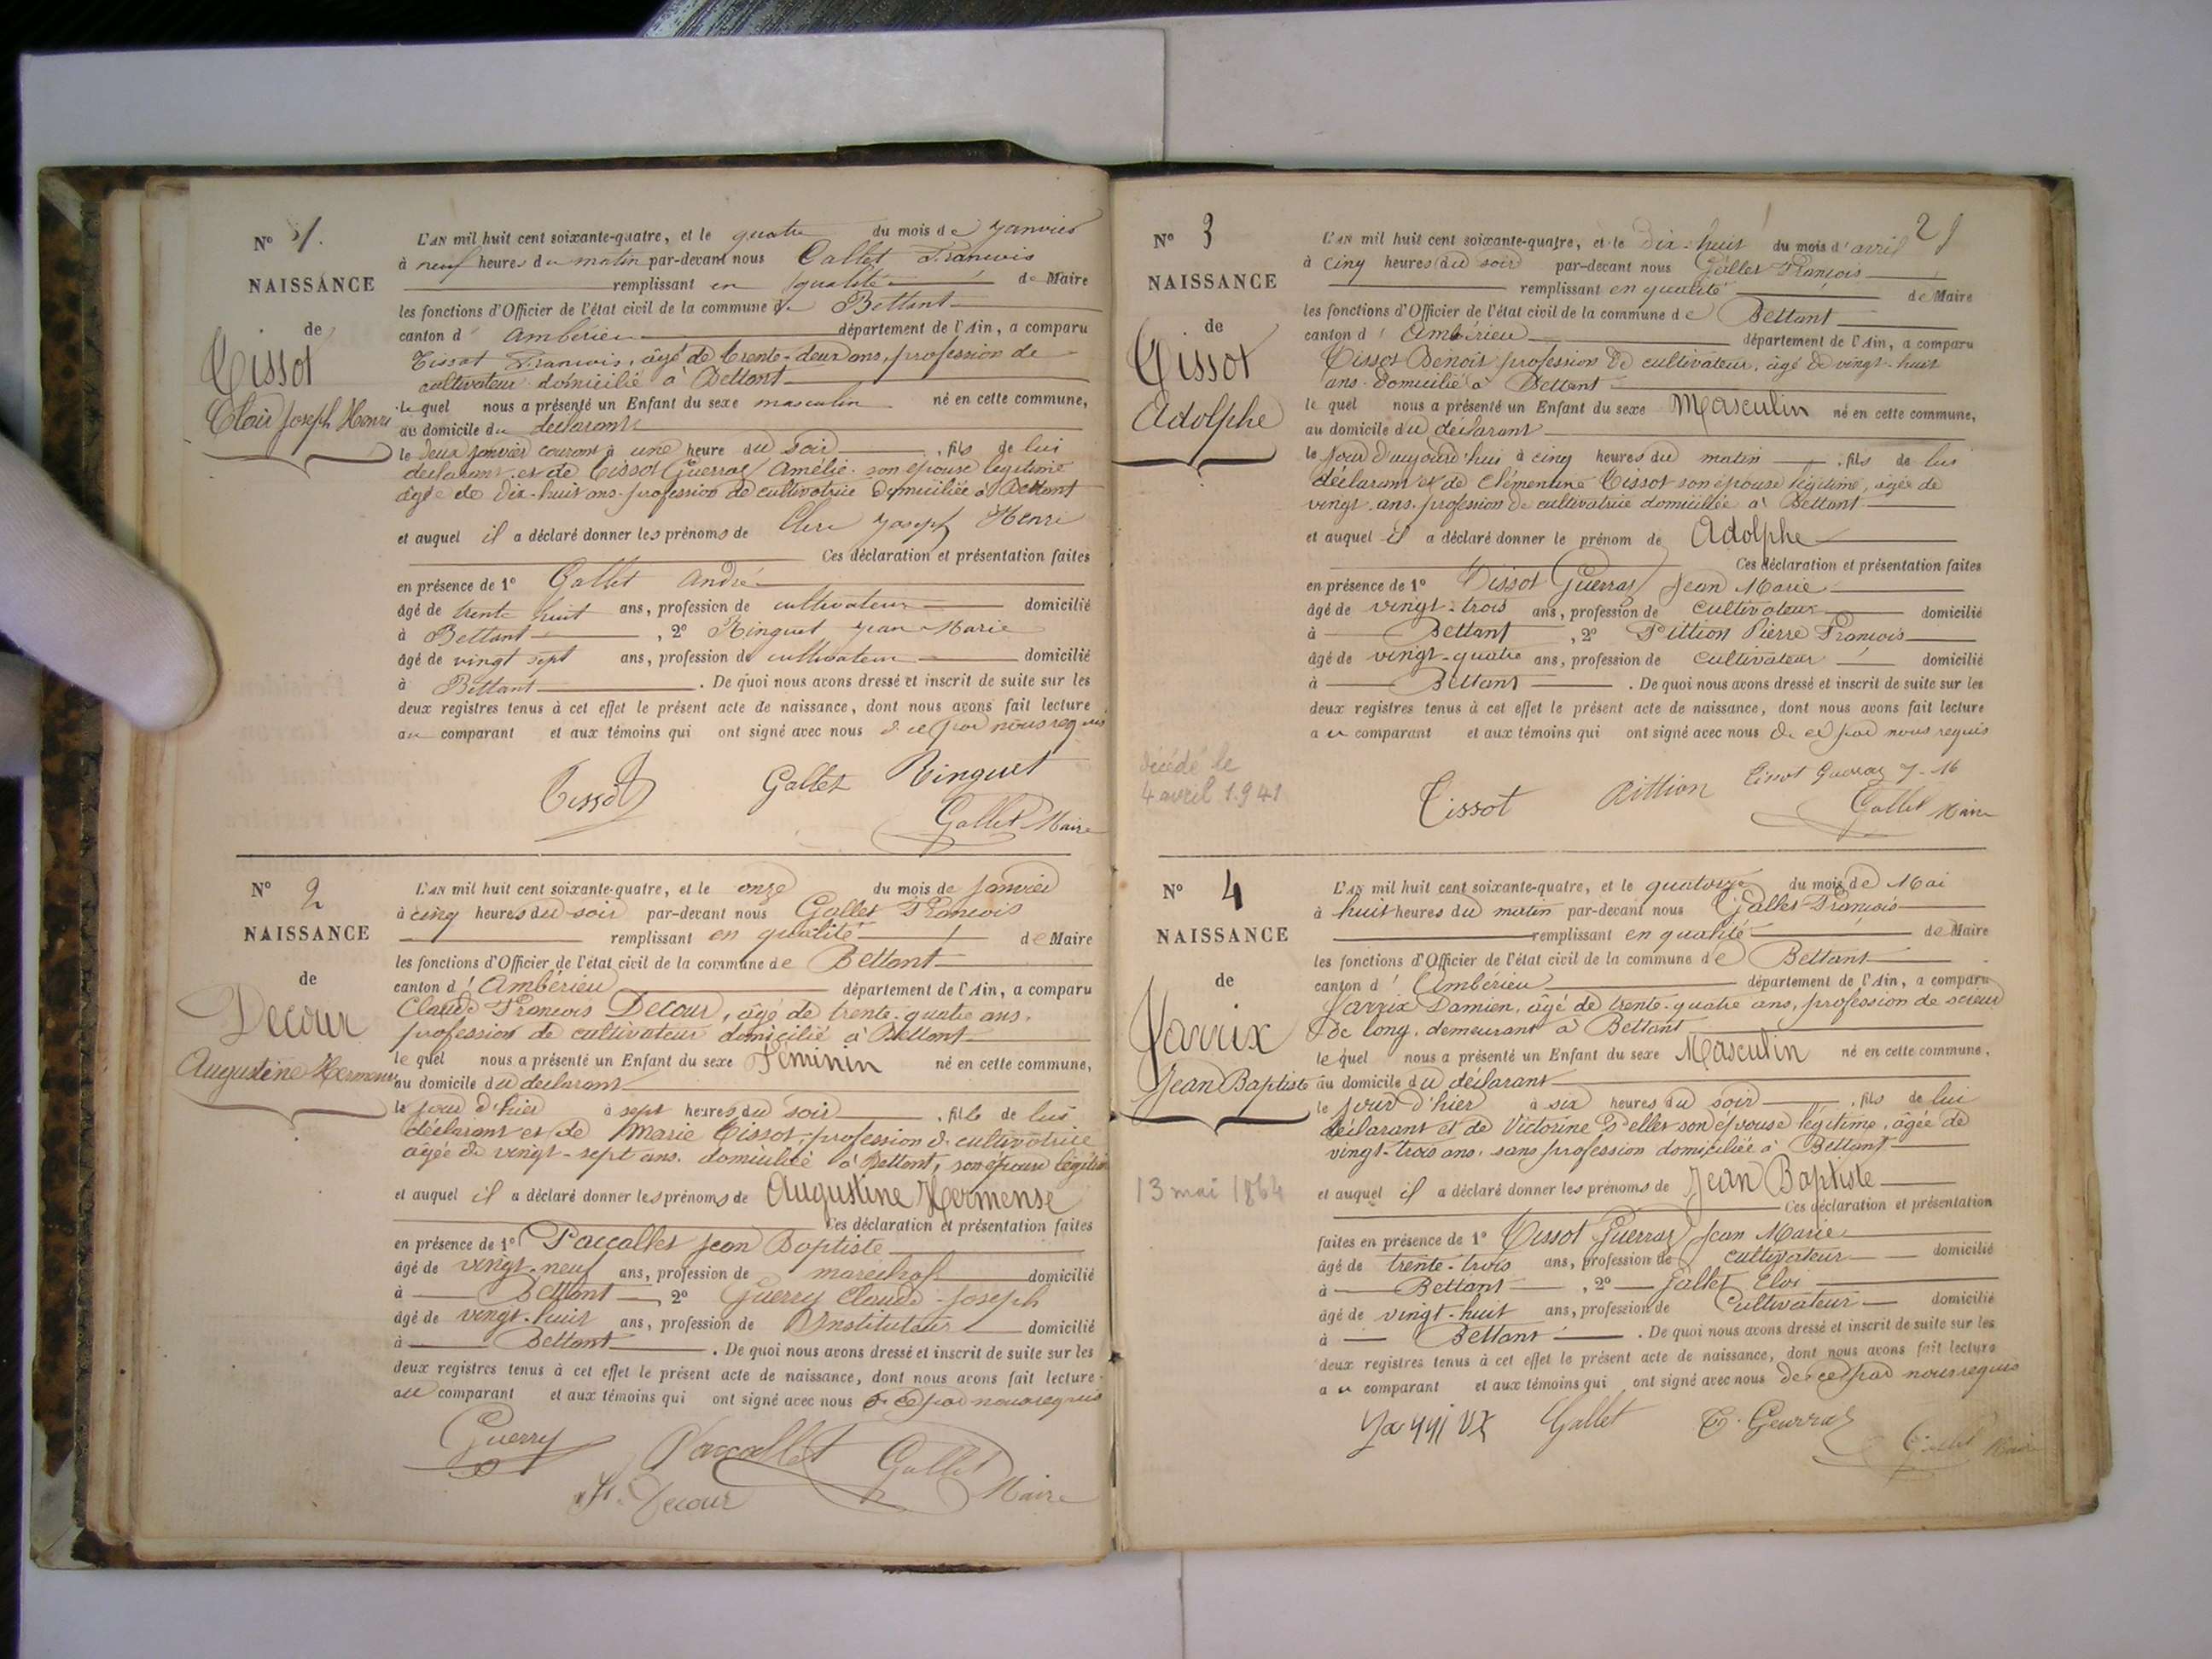 N° 1.
NAISSANCE
de
Tissot
Clair Joseph Henri
L'AN mil huit cent soixante-quatre, et le quatre du mois de Janvier
à neuf heures du matin par-devant nous Gallet Francois
remplissant en qualité de Maire
les fonctions d'Officier de l'état civil de la commune de Bettant
canton d' Ambérieu département de l'Ain, a comparu
Tissot Francois, âgé de trente-deux ans, profession de
cultivateur domicilié à Bettant
le quel nous a présenté un Enfant du sexe masculin né en cette commune,
au domicile du declarant
le deux janvier courant à une heure du soir, fils de lui
declarant et de Tissot Guerraz Amélie son épouse légitime
âgée de dix-huit ans profession de cultivatrice domiciliée à Bettant
et auquel il a déclaré donner les prénoms de Joseph Henri
Ces déclaration et présentation faites
en présence de 1° Gallet André
âgé de trente huit ans, profession de cultivateur domicilié
à Bettant, 2° Ringuet Jean Marie
âgé de vingt sept ans, profession de cultivateur domicilié
à Bettant. De quoi nous avons dressé et inscrit de suite sur les
deux registres tenus à cet effet le présent acte de naissance, dont nous avons fait lecture
au comparant et aux témoins qui ont signé avec nous de ce par nous requis
Tissot Gallet Ringuet
Gallet Maire
N° 2
NAISSANCE
de
Decour
Augustine Hermense
L'AN mil huit cent soixante-quatre, et le onze du mois de Janvier
à cinq heures du soir par-devant nous Gallet Francois
remplissant en qualité de Maire
les fonctions d'Officier de l'état civil de la commune de Bettant
canton d' Ambérieu département de l'Ain, a comparu
Claude Francois Decour, âgé de trente-quatre ans,
profession de cultivateur domicilié à Bettant
le quel nous a présenté un Enfant du sexe Féminin né en cette commune,
au domicile du declarant
le jour d'hier à sept heures du soir, fille de lui
déclarant et de Marie Tissot, profession de cultivatrice
âgée de vingt-sept ans. domiciliée à Bettant, son épouse légitime
et auquel il a déclaré donner les prénoms de Augustine Hermense
Ces déclaration et présentation faites
en présence de 1° Paccallet Jean Baptiste
âgé de vingt-neuf ans, profession de maréchal domicilié
à Bettant, 2° Guerry Claude Joseph
âgé de vingt-huit ans, profession de Instituteur domicilié
à Bettant. De quoi nous avons dressé et inscrit de suite sur les
deux registres tenus à cet effet le présent acte de naissance, dont nous avons fait lecture
au comparant et aux témoins qui ont signé avec nous de ce par nous requis
Guerry Paccallet Gallet
Decour Maire
29
N° 3
NAISSANCE
de
Tissot
Adolphe
décédé le
4 avril 1941
L'AN mil huit cent soixante-quatre, et le Dix-huit du mois d'avril
à cinq heures du soir par-devant nous Gallet François
remplissant en qualité de Maire
les fonctions d'Officier de l'état civil de la commune de Bettant
canton d' Ambérieu département de l'Ain, a comparu
Tissot Benoît profession de cultivateur, âgé de vingt-huit
ans domicilié à Bettant
le quel nous a présenté un Enfant du sexe Masculin né en cette commune,
au domicile du déclarant
le jour d'aujourd'hui à cinq heures du matin, fils de lui
déclarant et de Clémentine Tissot son épouse légitime, âgée de
vingt ans, profession de cultivatrice domiciliée à Bettant
et auquel il a déclaré donner le prénom de Adolphe
Ces déclaration et présentation faites
en présence de 1° Tissot Guerraz Jean Marie
âgé de vingt-trois ans, profession de cultivateur domicilié
à Bettant, 2° Pittion Pierre Francois
âgé de vingt-quatre ans, profession de cultivateur domicilié
à Bettant. De quoi nous avons dressé et inscrit de suite sur les
deux registres tenus à cet effet le présent acte de naissance, dont nous avons fait lecture
au comparant et aux témoins qui ont signé avec nous de ce par nous requis
Tissot Pittion Tissot Guerraz J-M
Gallet Maire
N° 4
NAISSANCE
de
Jarrix
Jean Baptiste
13 mai 1864
L'AN mil huit cent soixante-quatre, et le quatorze du mois de Mai
à huit heures du matin par-devant nous Gallet Francois
remplissant en qualité de Maire
les fonctions d'Officier de l'état civil de la commune de Bettant
canton d' Ambérieu département de l'Ain, a comparu
Jarrix Damien, âgé de trente-quatre ans, profession de scieur
de long, demeurant à Bettant
le quel nous a présenté un Enfant du sexe Masculin né en cette commune,
au domicile du déclarant
le jour d'hier à six heures du soir, fils de lui
déclarant et de Victorine son épouse légitime, âgée de
vingt-trois ans, sans profession domiciliée à Bettant
et auquel il a déclaré donner les prénoms de Jean Baptiste
Ces déclaration et présentation
faites en présence de 1° Tissot Guerraz Jean Marie
âgé de trente-trois ans, profession de cultivateur domicilié
à Bettant, 2° Gallet Eloi
âgé de vingt-huit ans, profession de Cultivateur domicilié
à Bettant. De quoi nous avons dressé et inscrit de suite sur les
deux registres tenus à cet effet le présent acte de naissance, dont nous avons fait lecture
au comparant et aux témoins qui ont signé avec nous de ce par nous requis
Gallet T. Geurraz
Gallet Maire